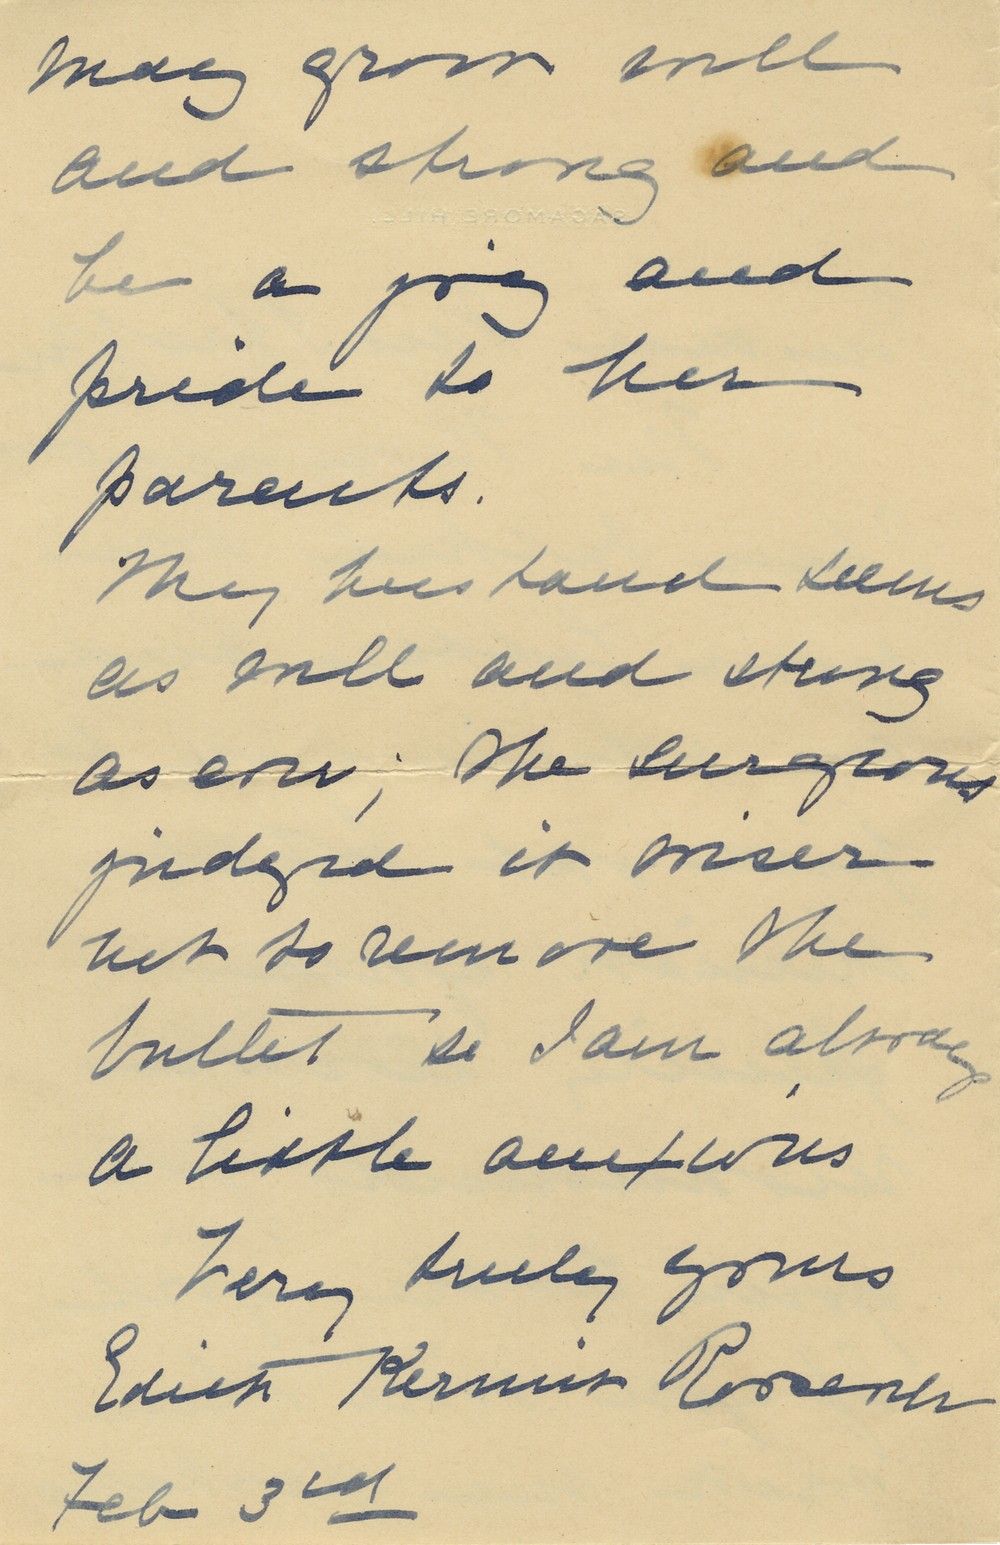 may grow well
and strong and
SAGAMORE HILL.
be a joy and
pride to her
parents.
My husband seems
as well and strong
as ever; the surgeons
judged it wiser
not to remove the
bullet so I am always
a little anxious
Very truly yours
Edith Kermit Roosevelt
Feb 3rd